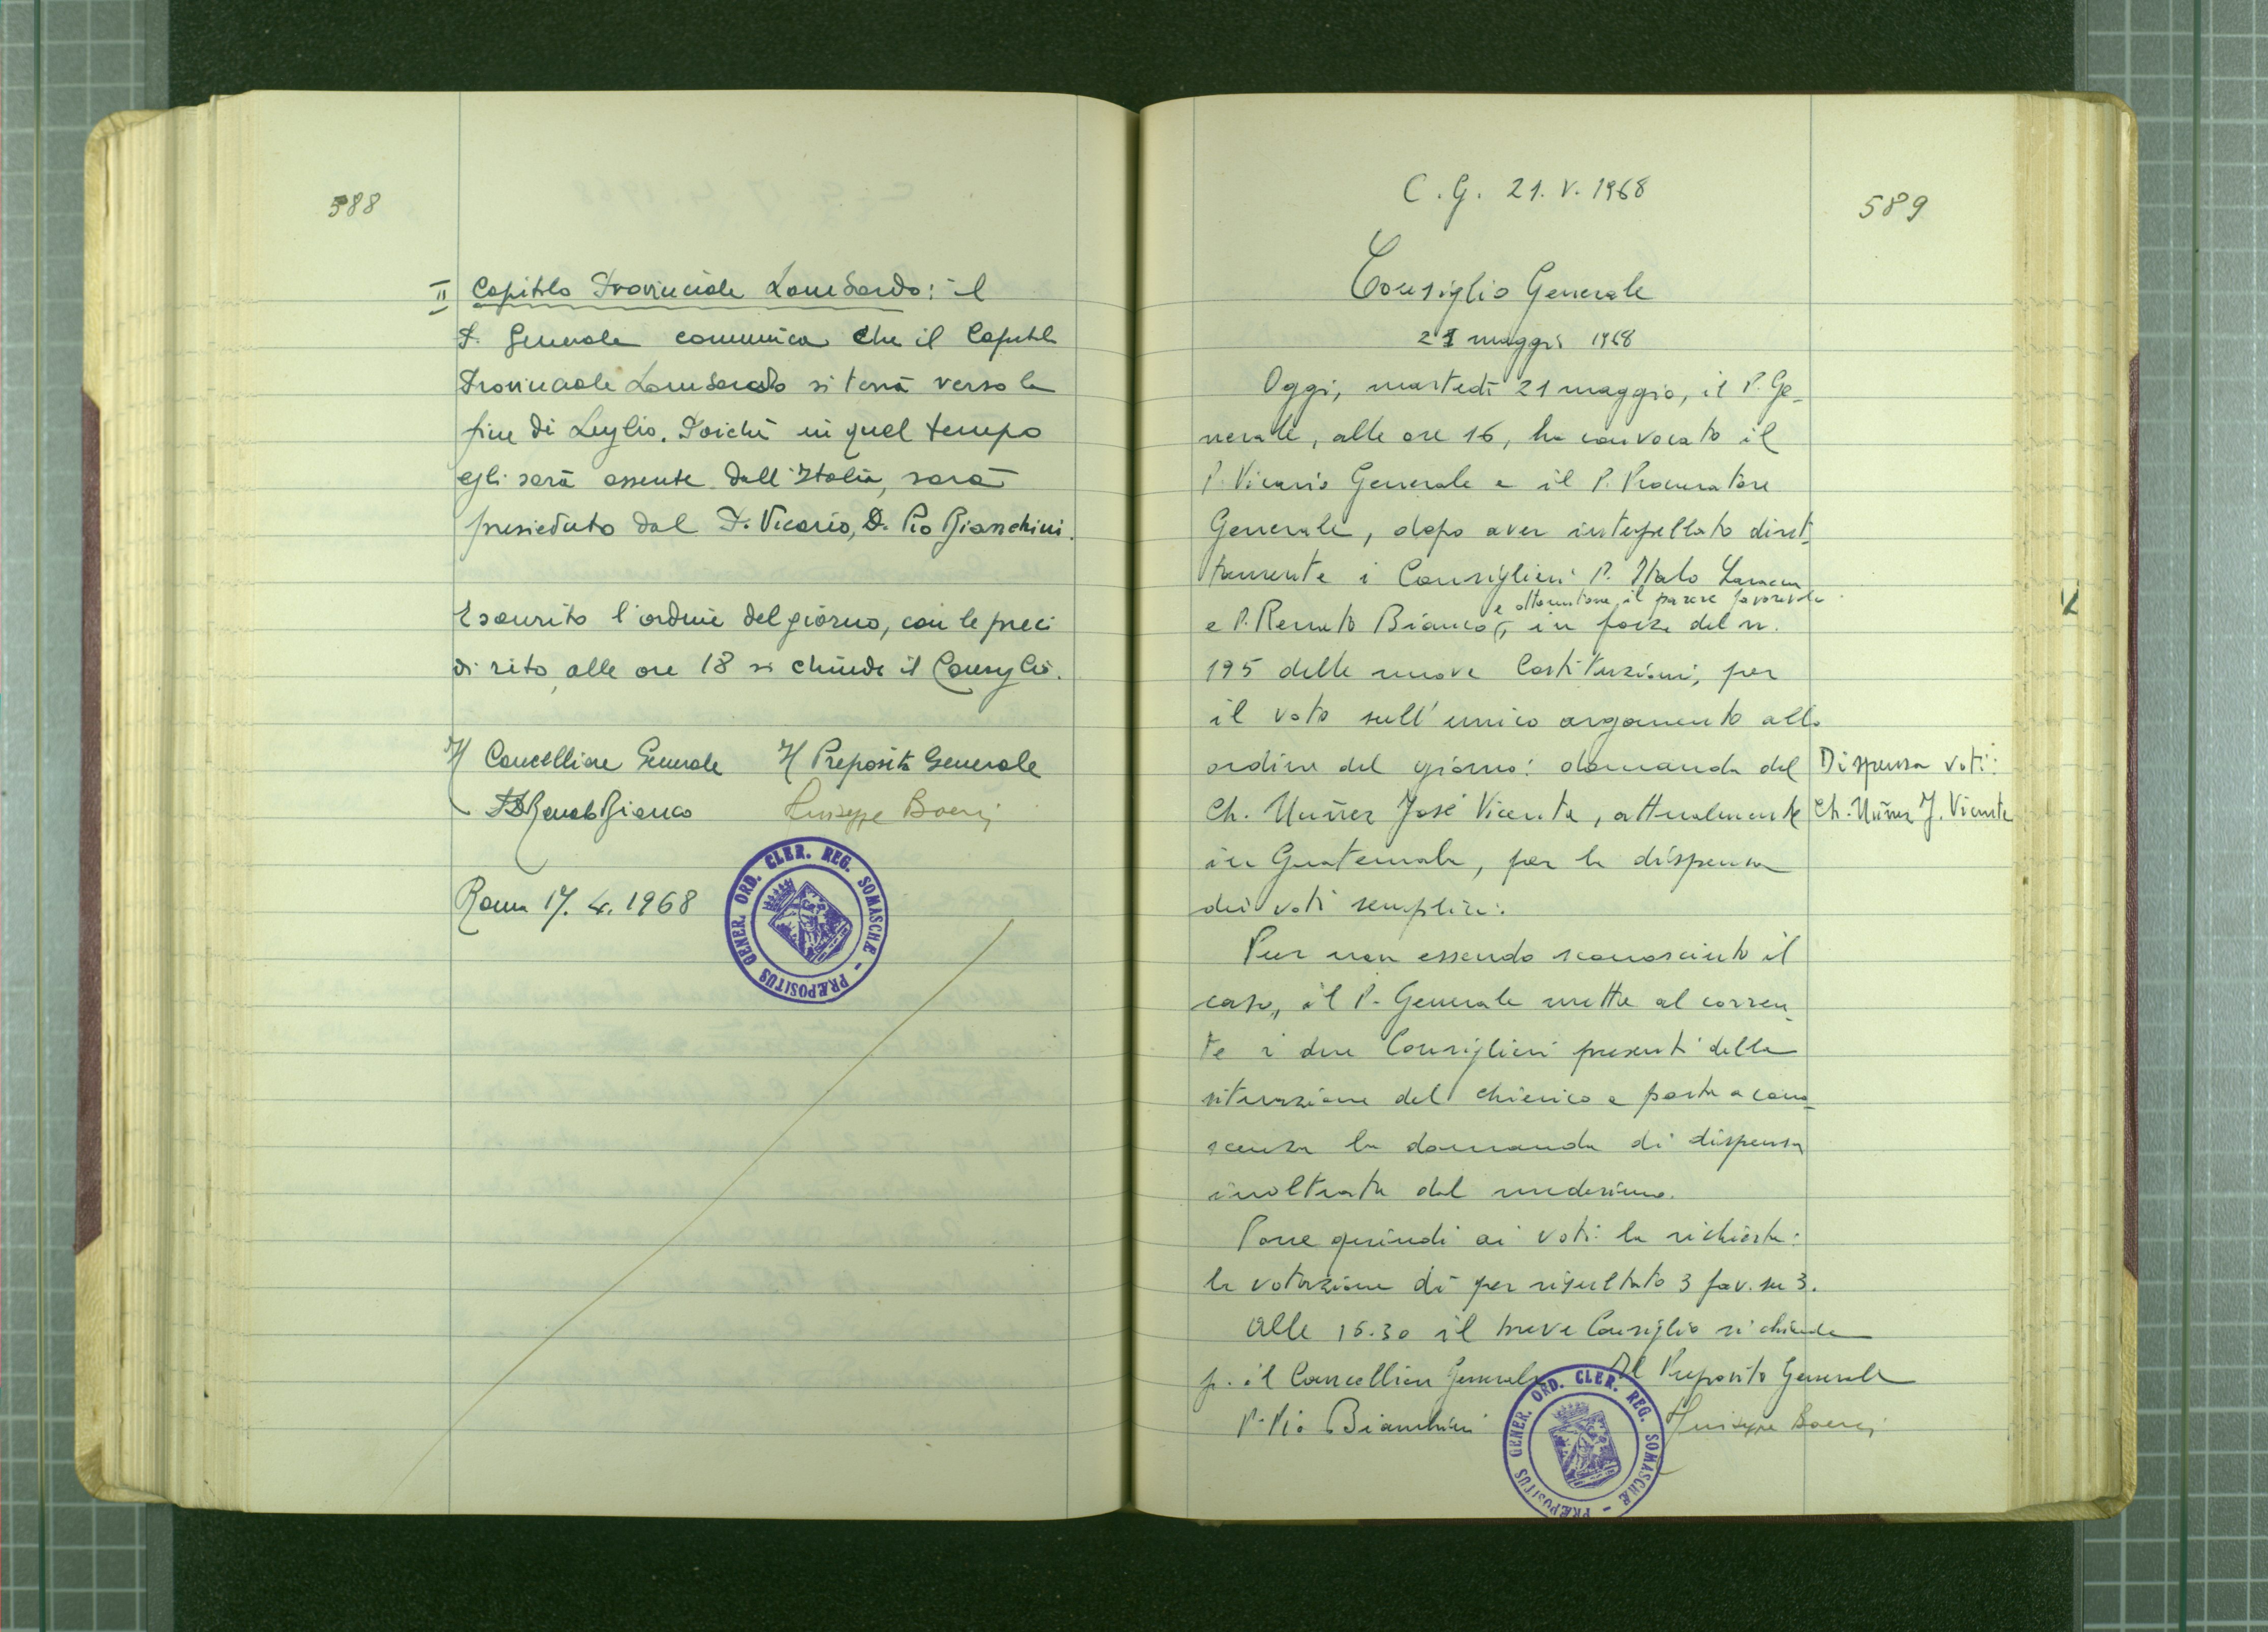 588
II Capitolo Provinciale Lombardo: il
P. Generale comunica che il Capitolo
Provinciale Lombardo si terrà verso la
fine di Luglio. Poichè in quel tempo
egli sarà assente dall'Italia, sarà
presieduto dal P. Vicario, P. Pio Bianchini.
Esaurito l'ordine del giorno, con le preci
di rito, alle ore 18 si chiude il Consiglio.
Il Cancelliere Generale Il Preposito Generale
P. Renato Bianco Giuseppe Boeri
Roma 17. 4. 1968
GENER. ORD. CLER. REG. SOMASCHÆ - PRÆPOSITUS
C. G. 21. V. 1968
589
Consiglio Generale
21 maggio 1968
Oggi, martedì 21 maggio, il P. Ge-
nerale, alle ore 16, ha convocato il
P. Vicario Generale e il P. Procuratore
Generale, dopo aver interpellato diret-
tamente i Consiglieri P. Italo Laracca
e ottenutone il parere favorevole
e P. Renato Bianco, in forza del n.
195 delle nuove Costituzioni, per
il voto sull'unico argomento allo
ordine del giorno: domanda del
Ch. Nuñez José Vicente, attualmente
in Guatemala, per la dispensa
dei voti semplici.
Dispensa voti:
Ch. Nuñez J. Vicente
Pur non essendo sconosciuto il
caso, il P. Generale mette al corren-
te i due Consiglieri presenti della
situazione del chierico e porta a cono-
scenza la domanda di dispensa
inoltrata dal medesimo.
Pone quindi ai voti la richiesta:
la votazione dà per risultato 3 fav. su 3.
Alle 16.30 il breve Consiglio si chiude
p. il Cancelliere Generale Il Preposito Generale
P. Pio Bianchini Giuseppe Boeri
GENER. ORD. CLER. REG. SOMASCHÆ - PRÆPOSITUS